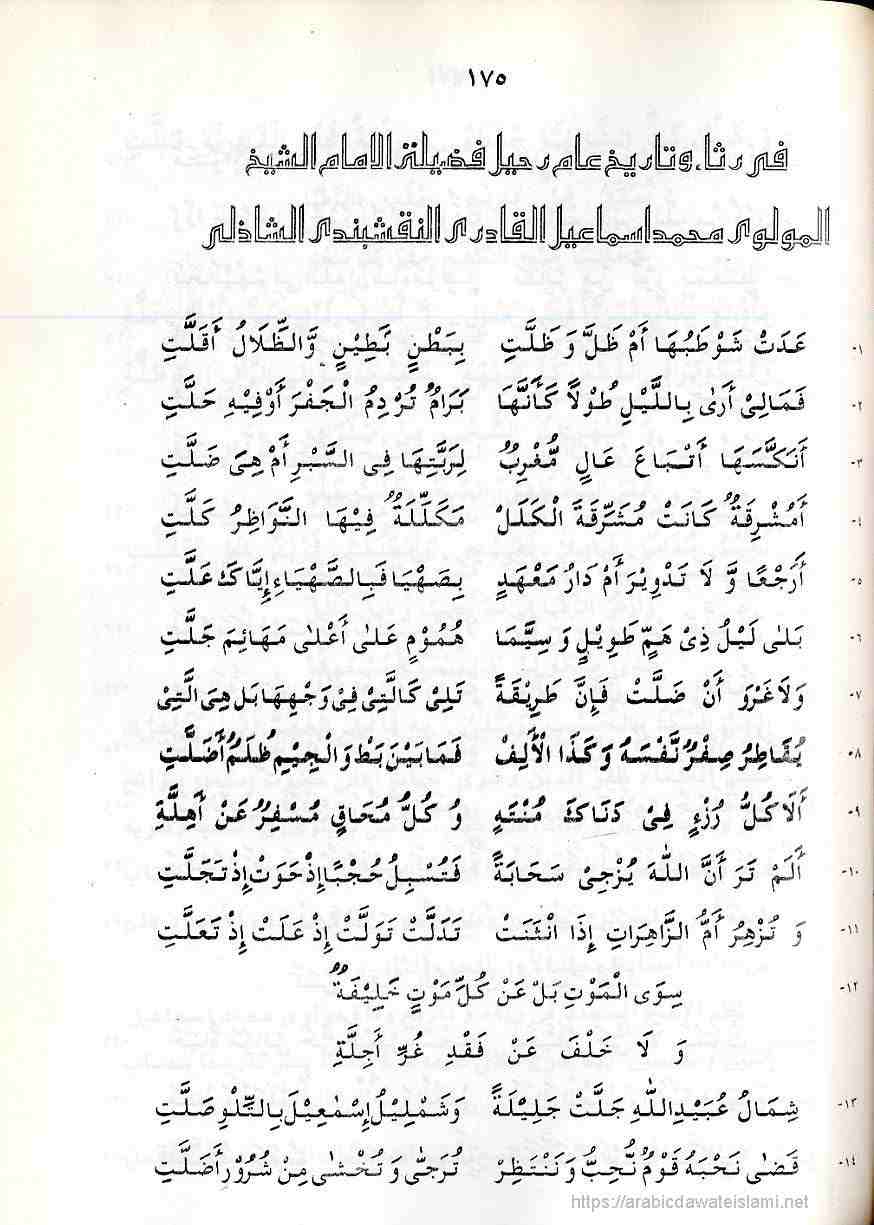 ١٧٥
فى رثاء وتاريخ عام رحيل فضيلة الامام الشيخ
المولوى محمد اسماعيل القادرى النقشبندى الشاذلى
١- عَدَتْ شَوْطَبُهَا أَمْ ظَلَّ وَ ظَلَّتِ بِبَطْنٍ بَطِيْنٍ وَّالظِّلَالُ أَقَلَّتِ
٢- فَمَالِىْ أَرٰى بِاللَّيْلِ طُوْلًا كَأَنَّهَا بَرَامٌ تُرْدِمُ الْجَفْرَ أَوْفِيْهِ حَلَّتِ
٣- أَنَكَّسَهَا أَتْبَاعَ عَالٍ مُّغْرِبٌ لِرَبَّتِهَا فِى السَّبْرِ أَمْ هِىَ ضَلَّتِ
٤- أَمُشْرِقَةٌ كَانَتْ مُشَرِّقَةَ الْكَلَلْ مَكَلِّلَةٌ فِيْهَا النَّوَاظِرُ كَلَّتِ
٥- أَرَجْعًا وَّ لَا تَدْوِيْرَ أَمْ دَارُ مَعْهَدٍ بِصَهْيَا فَبِالصَّهْيَاءِ إِيَّاكَ عَلَّتِ
٦- بَلٰى لَيْلُ ذِىْ هَمٍّ طَوِيْلٍ وَ سِيَّمَا هُمُوْمٍ عَلٰى أَعْلٰى مَهَائِمَ جَلَّتِ
٧- وَلَاغَرْوَ أَنْ ضَلَّتْ فَإِنَّ طَرِيْقَةً تَلِىْ كَالَّتِىْ فِىْ وَجْهِهَا بَلْ هِىَ الَّتِىْ
٨- يُقَاطِرُ صِفْرٌ نَّفْسَهُ وَكَذَا الْأَلِفْ فَمَابَيْنَ بَطْ وَالْجِيْمِ ظُلَمٌ أَضَلَّتِ
٩- أَلَاكُلُّ رُزْءٍ فِىْ دَنَاكَ مُنْتَهٍ وَ كُلُّ مُحَاقٍ مُسْفِرٌ عَنْ أَهِلَّةِ
١٠- أَلَمْ تَرَ أَنَّ اللّٰهَ يُزْجِىْ سَحَابَةً فَتُسْبِلُ حُجْبًا إِذْحَوَتْ إِذْ تَجَلَّتِ
١١- وَ تُزْهِرُ أَمُّ الزَّاهِرَاتِ إِذَا انْثَنَتْ تَدَلَّتْ تَوَلَّتْ إِذْ عَلَتْ إِذْ تَعَلَّتِ
١٢- سِوَى الْمَوْتِ بَلْ عَنْ كُلِّ مَوْتٍ خَلِيْفَةٌ
وَ لَا خَلْفَ عَنْ فَقْدِ غُرٍّ أَجِلَّةِ
١٣- شِمَالُ عُبَيْدِاللّٰهِ جَلَّتْ جَلِيْلَةً وَشَمْلِيْلُ إِسْمٰعِيْلَ بِالتِّلْوِ صَلَّتِ
١٤- قَضٰى نَحْبَهُ قَوْمٌ نُّحِبُّ وَنَنْتَظِرْ تُرَجّٰى وَ تُخْشٰى مِنْ شُرُوْرٍ أَضَلَّتِ
https://arabicdawateislami.net